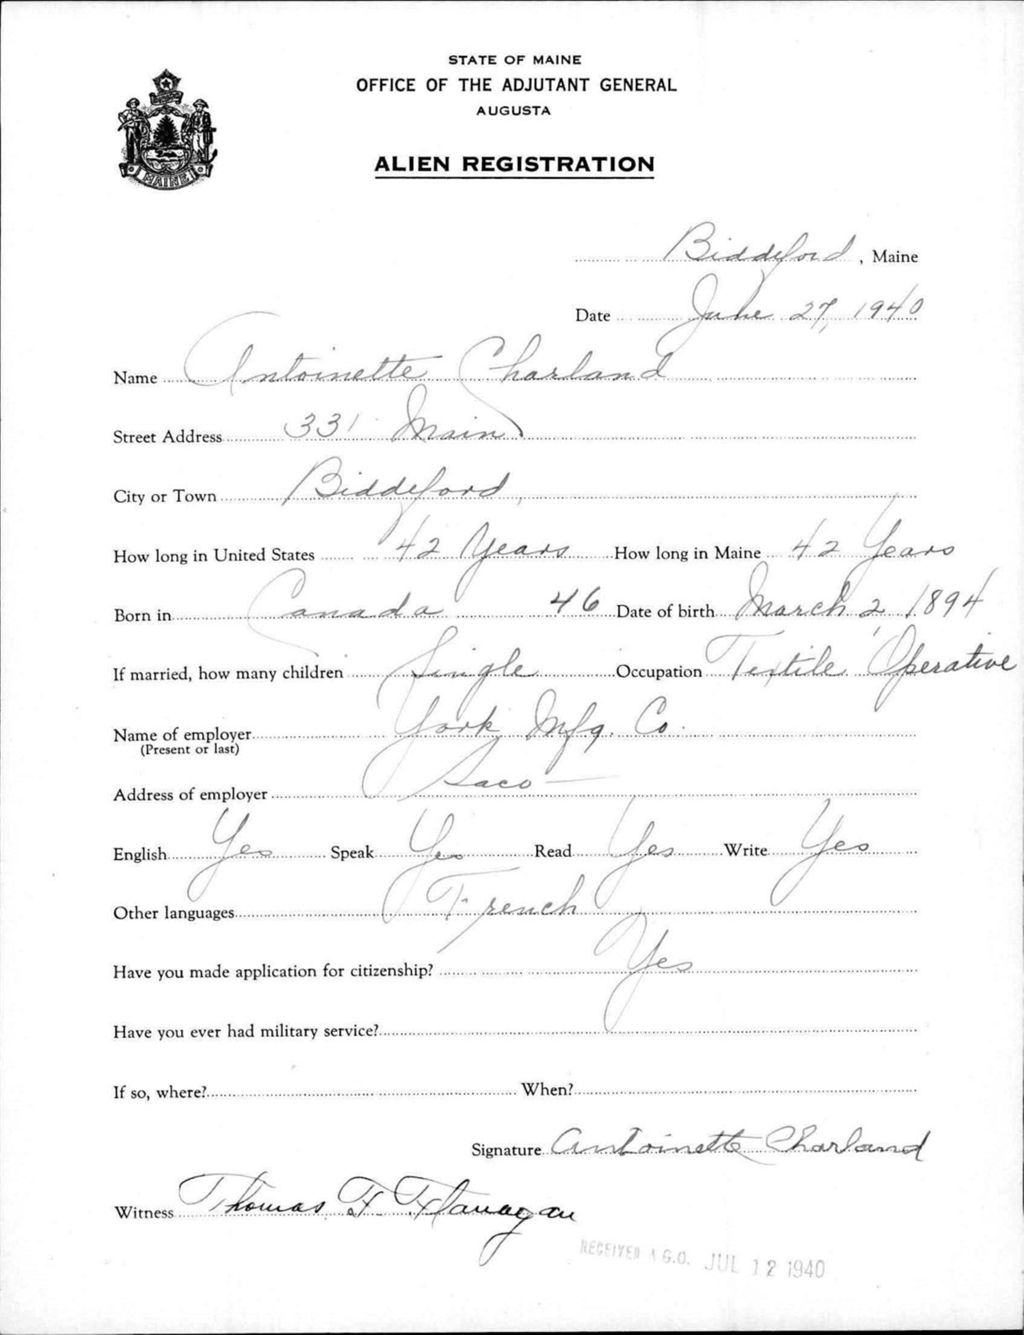 STATE OF MAINE
OFFICE OF THE ADJUTANT GENERAL
AUGUSTA
ALIEN REGISTRATION
MAINE
Biddeford, Maine
Date June 27, 1940
Name Antoinette Charland
Street Address 331 Main
City or Town Biddeford,
How long in United States 42 Years How long in Maine 42 Years
Born in Canada 46 Date of birth March 2, 1894
If married, how many children Single Occupation Textile Operative
Name of employer York Mfg. Co.
(Present or last)
Address of employer Saco
English Yes Speak Yes Read Yes Write Yes
Other languages French
Have you made application for citizenship? Yes
Have you ever had military service?
If so, where? When?
Signature Antoinette Charland
Witness Thomas F. Flanagan
RECEIVED A.G.O. JUL 12 1940